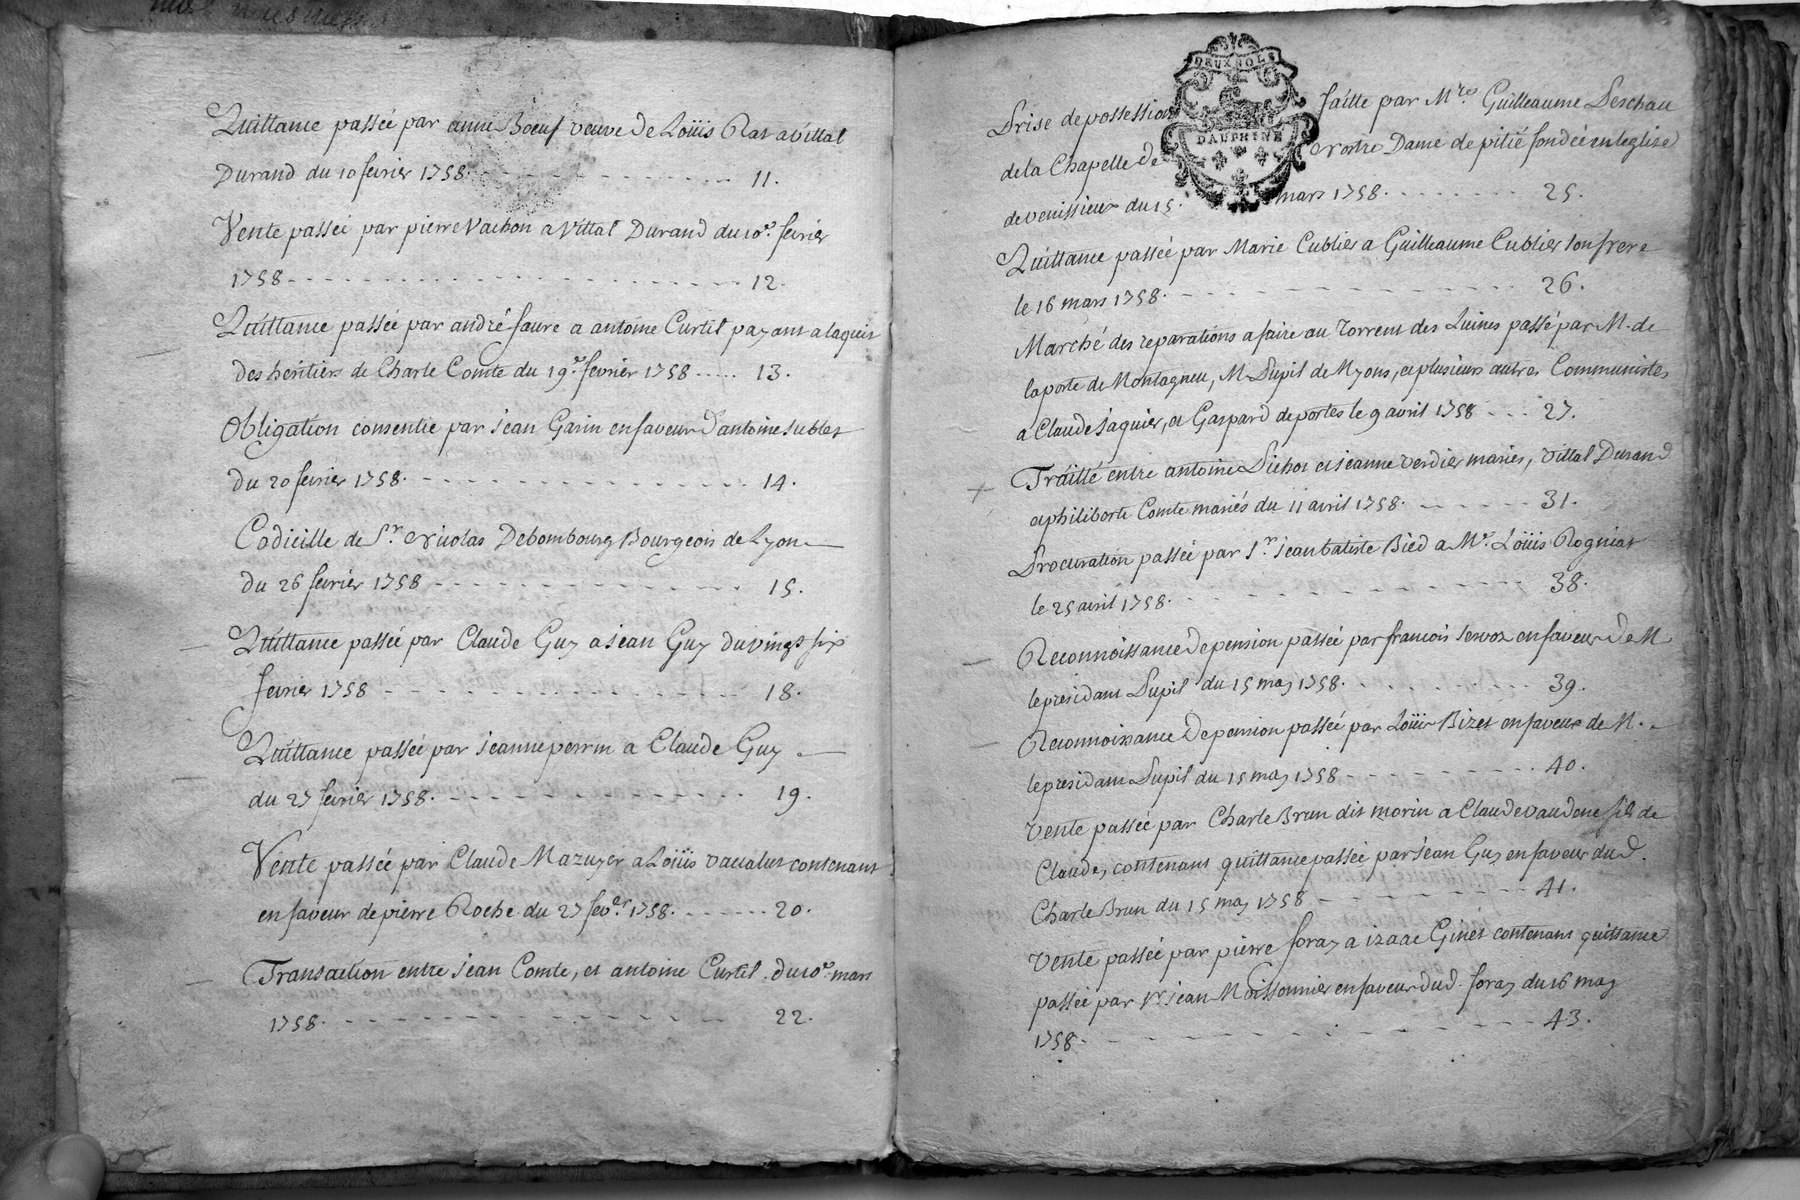 Quittance passée par anne Boeuf veuve de Loüis Rat a vittal
Durand du 10 fevrier 1758. 11.
Vente passée par pierre Vachon a Vittal Durand du 10e. fevrier
1758 12.
Quittance passée par andré faure a antoine Curtil payant a laquit
des heritiers de Charle Comte du 19e. fevrier 1758 13.
Obligation consentie par jean Garin en faveur d'antoine sublet
du 20 fevrier 1758. 14.
Codicille de Sr. Nicolas Debombourg Bourgeois de Lyon
du 26 fevrier 1758 15.
Quittance passée par Claude Guy a jean Guy du vingt six
fevrier 1758 18.
Quittance passée par jeanne perrin a Claude Guy
du 27 fevrier 1758. 19.
Vente passée par Claude Mazuyer a Loüis contenant
en faveur de pierre Roche du 27 fever 1758. 20.
Transaction entre jean Comte, et antoine Curtil du 10e. mars
1758. 22.
DEUX SOLS
DAUPHINE
Prise de possession faitte par Mre. Guilleaume Deschau
de la Chapelle de Nostre Dame de pitié fondée en leglise
de venissieux du 15. mars 1758. 25.
Quittance passée par Marie Cublier a Guilleaume Cublier son frere
le 16 mars 1758. 26.
Marché des reparations a faire au Torrent des passé par M. de
laporte de Montagneu, M. Dupil de Myons, et plusieurs autres Communistes
a Claude jaquier, et Gaspard deportes le 9 avril 1758 27.
Traitté entre antoine et jeanne verdier mariés, vittal Durand
et philiberte Comte mariés du 11 avril 1758. 31.
Procuration passée par Sr. jean batiste Bied a Me. Loüis Rogniat
le 25 avril 1758. 38.
Reconnoissance de pension passée par francois servoz en faveur de M
le presidant Dupil du 15 may 1758. 39.
Reconnoissance de pension passée par Loüis Bizet en faveur de M.
le presidant Dupil du 15 may 1758 40.
Vente passée par Charle Brun dit morin a Claude vaudene fils de
Claude, contenant quittance passée par jean Guy en faveur dud.
Charle Brun du 15 may 1758 41.
Vente passée par pierre foray a izaac Ginet contenant quittance
passée par jean Moissonnier en faveur dud. foray du 16 may
1758. 43.